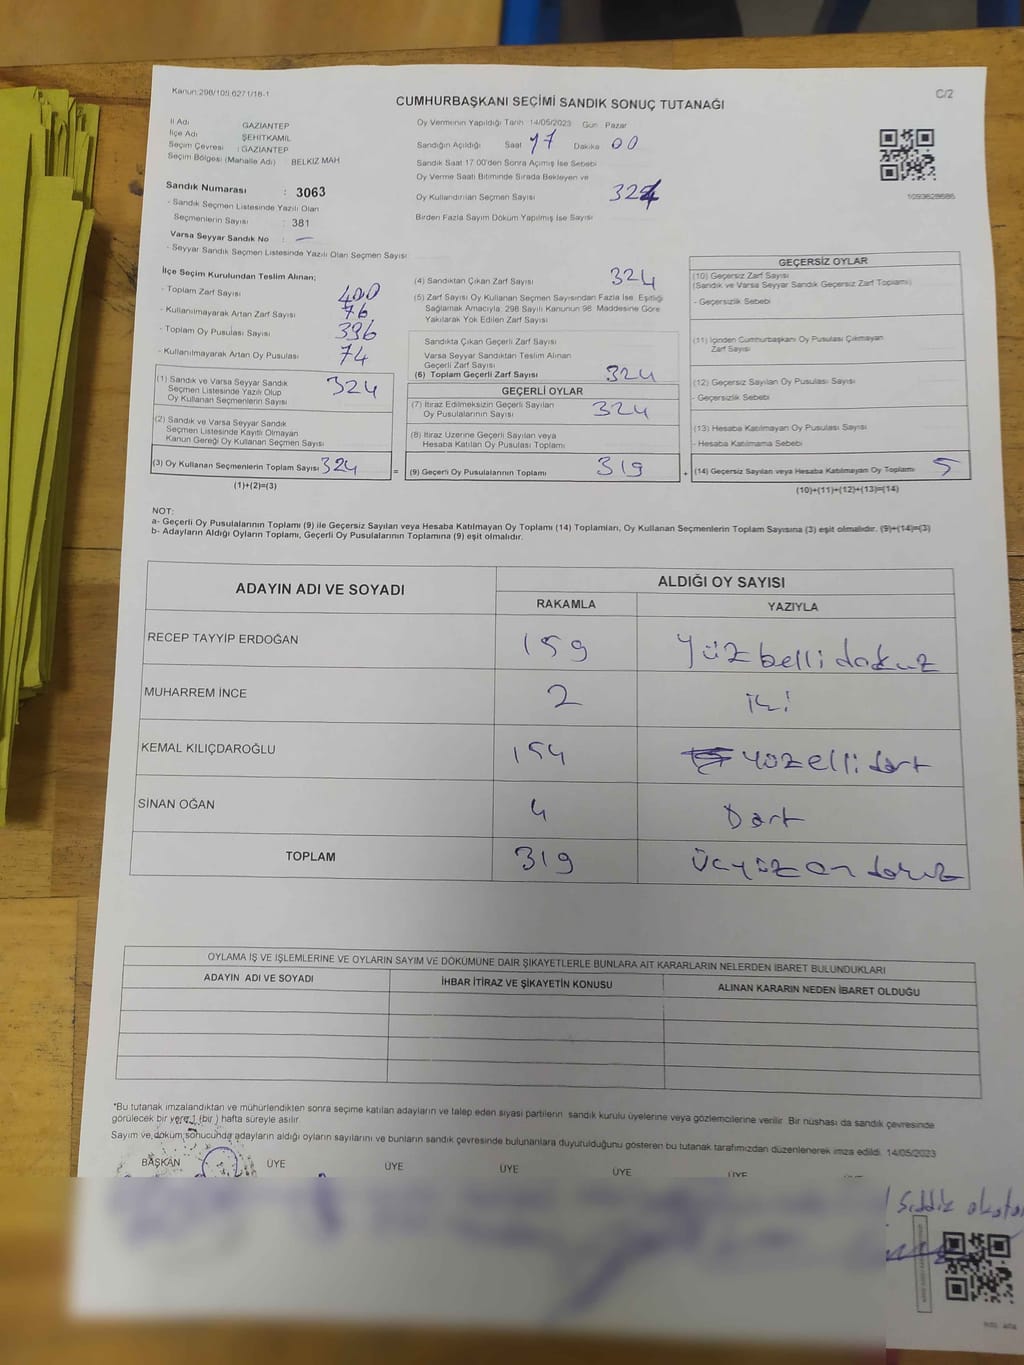 Kanun:298/105,6271/18-1
C/2
CUMHURBAŞKANI SEÇİMİ SANDIK SONUÇ TUTANAĞI
İl Adı GAZİANTEP
İlçe Adı ŞEHİTKAMİL
Seçim Çevresi : GAZİANTEP
Seçim Bölgesi (Mahalle Adı) BELKIZ MAH
Sandık Numarası : 3063
- Sandık Seçmen Listesinde Yazılı Olan
Seçmenlerin Sayısı : 381
Varsa Seyyar Sandık No : —
- Seyyar Sandık Seçmen Listesinde Yazılı Olan Seçmen Sayısı
Oy Vermenin Yapıldığı Tarih 14/05/2023 Gün Pazar
Sandığın Açıldığı Saat 17 Dakika 00
Sandık Saat 17.00'den Sonra Açımış İse Sebebi
Oy Verme Saati Bitiminde Sırada Bekleyen ve
Oy Kullandırılan Seçmen Sayısı 324
Birden Fazla Sayım Döküm Yapılmış İse Sayısı
1093628686
İlçe Seçim Kurulundan Teslim Alınan;
- Toplam Zarf Sayısı 400
- Kullanılmayarak Artan Zarf Sayısı 76
- Toplam Oy Pusulası Sayısı 396
- Kullanılmayarak Artan Oy Pusulası 74
(1) Sandık ve Varsa Seyyar Sandık
Seçmen Listesinde Yazılı Olup
Oy Kullanan Seçmenlerin Sayısı 324
(2) Sandık ve Varsa Seyyar Sandık
Seçmen Listesinde Kayıtlı Olmayan
Kanun Gereği Oy Kullanan Seçmen Sayısı
(3) Oy Kullanan Seçmenlerin Toplam Sayısı 324
(1)+(2)=(3)
(4) Sandıktan Çıkan Zarf Sayısı 324
(5) Zarf Sayısı Oy Kullanan Seçmen Sayısından Fazla İse, Eşitliği
Sağlamak Amacıyla; 298 Sayılı Kanunun 98. Maddesine Göre
Yakılarak Yok Edilen Zarf Sayısı
Sandıkta Çıkan Geçerli Zarf Sayısı
Varsa Seyyar Sandıktan Teslim Alınan
Geçerli Zarf Sayısı
(6) Toplam Geçerli Zarf Sayısı 324
GEÇERLİ OYLAR
(7) İtiraz Edilmeksizin Geçerli Sayılan
Oy Pusulalarının Sayısı 324
(8) İtiraz Üzerine Geçerli Sayılan veya
Hesaba Katılan Oy Pusulası Toplamı
= (9) Geçerli Oy Pusulalarının Toplamı 319
GEÇERSİZ OYLAR
(10) Geçersiz Zarf Sayısı
(Sandık ve Varsa Seyyar Sandık Geçersiz Zarf Toplamı)
- Geçersizlik Sebebi
(11) İçinden Cumhurbaşkanı Oy Pusulası Çıkmayan
Zarf Sayısı
(12) Geçersiz Sayılan Oy Pusulası Sayısı
- Geçersizlik Sebebi
(13) Hesaba Katılmayan Oy Pusulası Sayısı
- Hesaba Katılmama Sebebi
+ (14) Geçersiz Sayılan veya Hesaba Katılmayan Oy Toplamı 5
(10)+(11)+(12)+(13)=(14)
NOT:
a- Geçerli Oy Pusulalarının Toplamı (9) ile Geçersiz Sayılan veya Hesaba Katılmayan Oy Toplamı (14) Toplamları, Oy Kullanan Seçmenlerin Toplam Sayısına (3) eşit olmalıdır. (9)+(14)=(3)
b- Adayların Aldığı Oyların Toplamı, Geçerli Oy Pusulalarının Toplamına (9) eşit olmalıdır.
ADAYIN ADI VE SOYADI
ALDIĞI OY SAYISI
RAKAMLA YAZIYLA
RECEP TAYYİP ERDOĞAN 159 Yüzbelli dokuz
MUHARREM İNCE 2 iki
KEMAL KILIÇDAROĞLU 154 yüzelli dört
SİNAN OĞAN 4 Dört
TOPLAM 319 Üçyüz on dokuz
OYLAMA İŞ VE İŞLEMLERİNE VE OYLARIN SAYIM VE DÖKÜMÜNE DAİR ŞİKAYETLERLE BUNLARA AİT KARARLARIN NELERDEN İBARET BULUNDUKLARI
ADAYIN ADI VE SOYADI İHBAR İTİRAZ VE ŞİKAYETİN KONUSU ALINAN KARARIN NEDEN İBARET OLDUĞU
*Bu tutanak imzalandıktan ve mühürlendikten sonra seçime katılan adayların ve talep eden siyasi partilerin sandık kurulu üyelerine veya gözlemcilerine verilir. Bir nüshası da sandık çevresinde
görülecek bir yere 1 (bir) hafta süreyle asılır.
Sayım ve döküm sonucunda adayların aldığı oyların sayılarını ve bunların sandık çevresinde bulunanlara duyurulduğunu gösteren bu tutanak tarafımızdan düzenlenerek imza edildi. 14/05/2023
BAŞKAN ÜYE ÜYE ÜYE ÜYE ÜYE